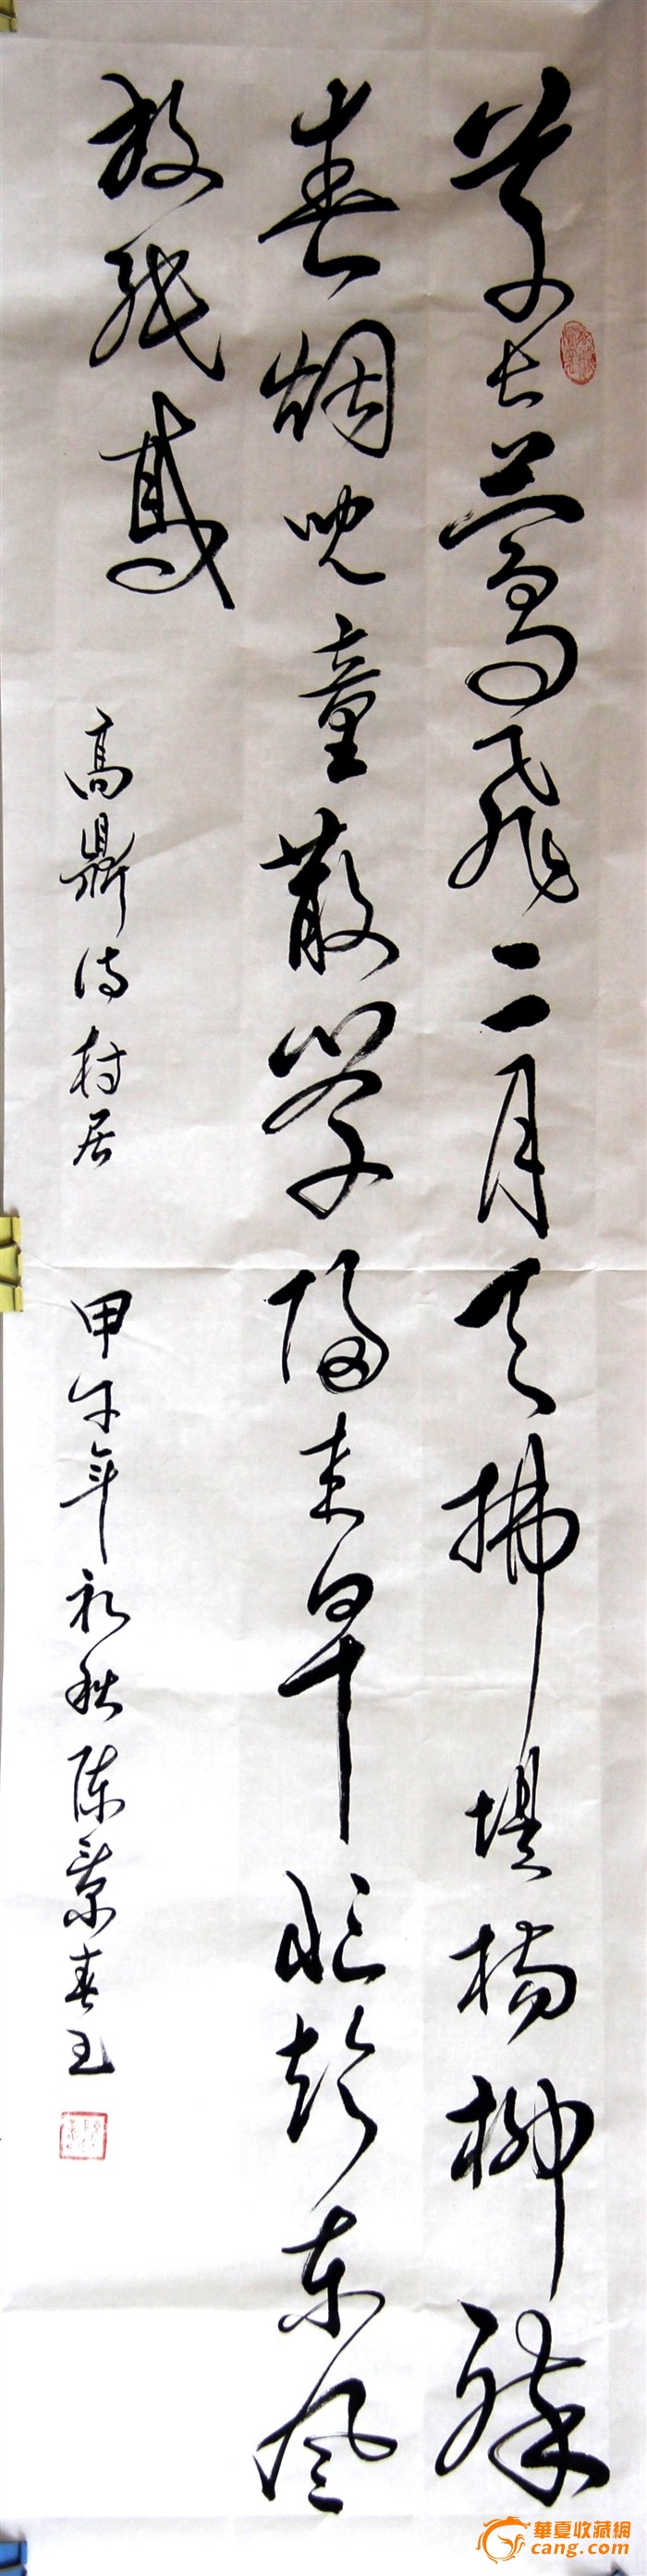 草长莺飞二月天拂堤杨柳醉
春烟兒童散学归来早忙趁东风
放纸鸢
高鼎诗村居 甲午年初秋陈景春书
華夏收藏網
cang.com